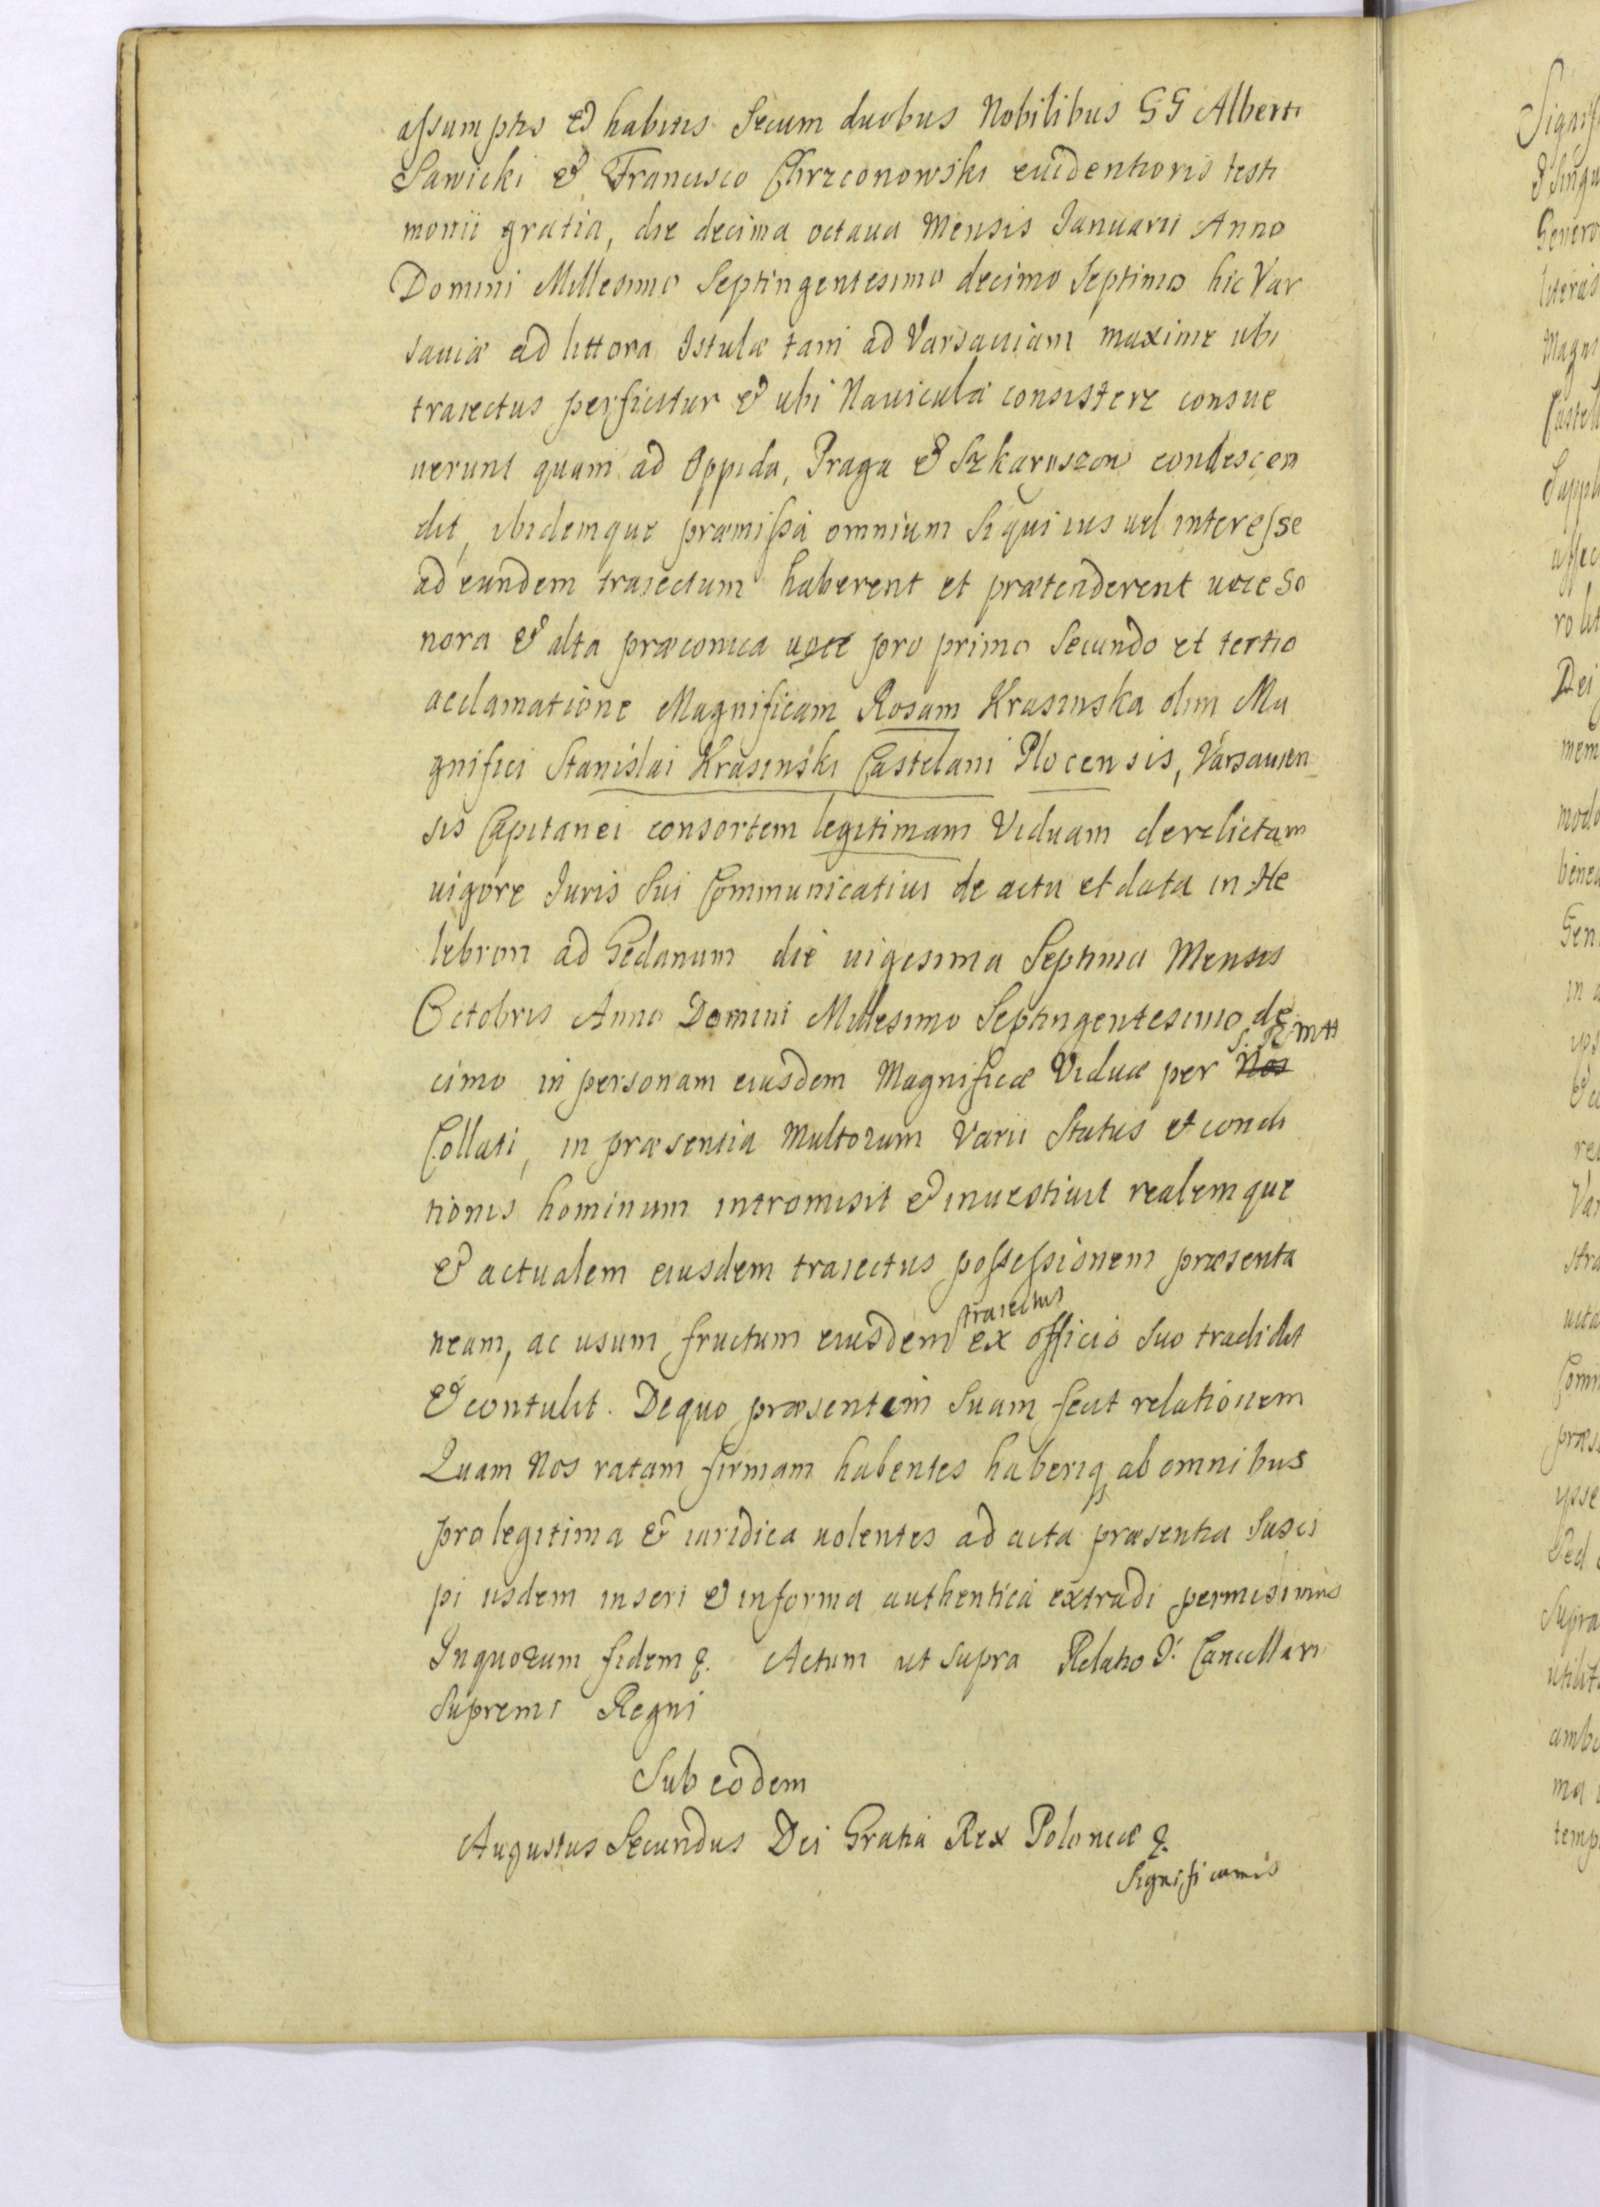 assumptis & habitis secum duobus Nobilibus GG Alberto
Sawicki & Francisco Chrzconowski euidentioris testi
monii gratia, die decima octaua Mensis Januarii Anno
Domini Millesimo Septingentesimo decimo Septimo hic Var
sauiæ ad littora Istulæ tam ad Varsauiam maxime ubi
traiectus perficitur & ubi Nauicula consistere consue
uerunt quam ad Oppida, Praga & Szkaruszow condescen
dit, ibidemque præmissa omnium si qui ius uel interesse
ad eundem traiectum haberent et prætenderent uoce so
nora & alta præconica uoce pro primo secundo et tertio
acclamatione Magnificam Rosam Krasinska olim Ma
gnifici Stanislai Krasinski Castelani Plocensis, Varsauien
sis Capitanei consortem legitimam Viduam derelictam
uigore Juris sui Communicatiui de actu et data in He
lebron ad Gedanum die uigesima Septima Mensis
Octobris Anno Domini Millesimo Septingentesimo de
cimo in personam eiusdem Magnificæ Viduæ per Nos S. R. Mtt
Collati, in præsentia Multorum Varii Status et condi
tionis hominum intromisit & inuestiuit realemque
& actualem eiusdem traiectus possessionem præsenta
neam, ac usum fructum eiusdem traiectus ex officio suo tradidit
& contulit. De quo præsentem suam fecit relationem
Quam Nos ratam firmam habentes haberiq ab omnibus
pro legitima & iuridica uolentes ad acta præsentia susci
pi iisdem inseri & in forma authentica extradi permisimus
In quorum fidem &. Actum ut supra Relatio J. Cancellarii
Supremi Regni
Sub eodem
Augustus Secundus Dei Gratia Rex Poloniæ &.
Significamus